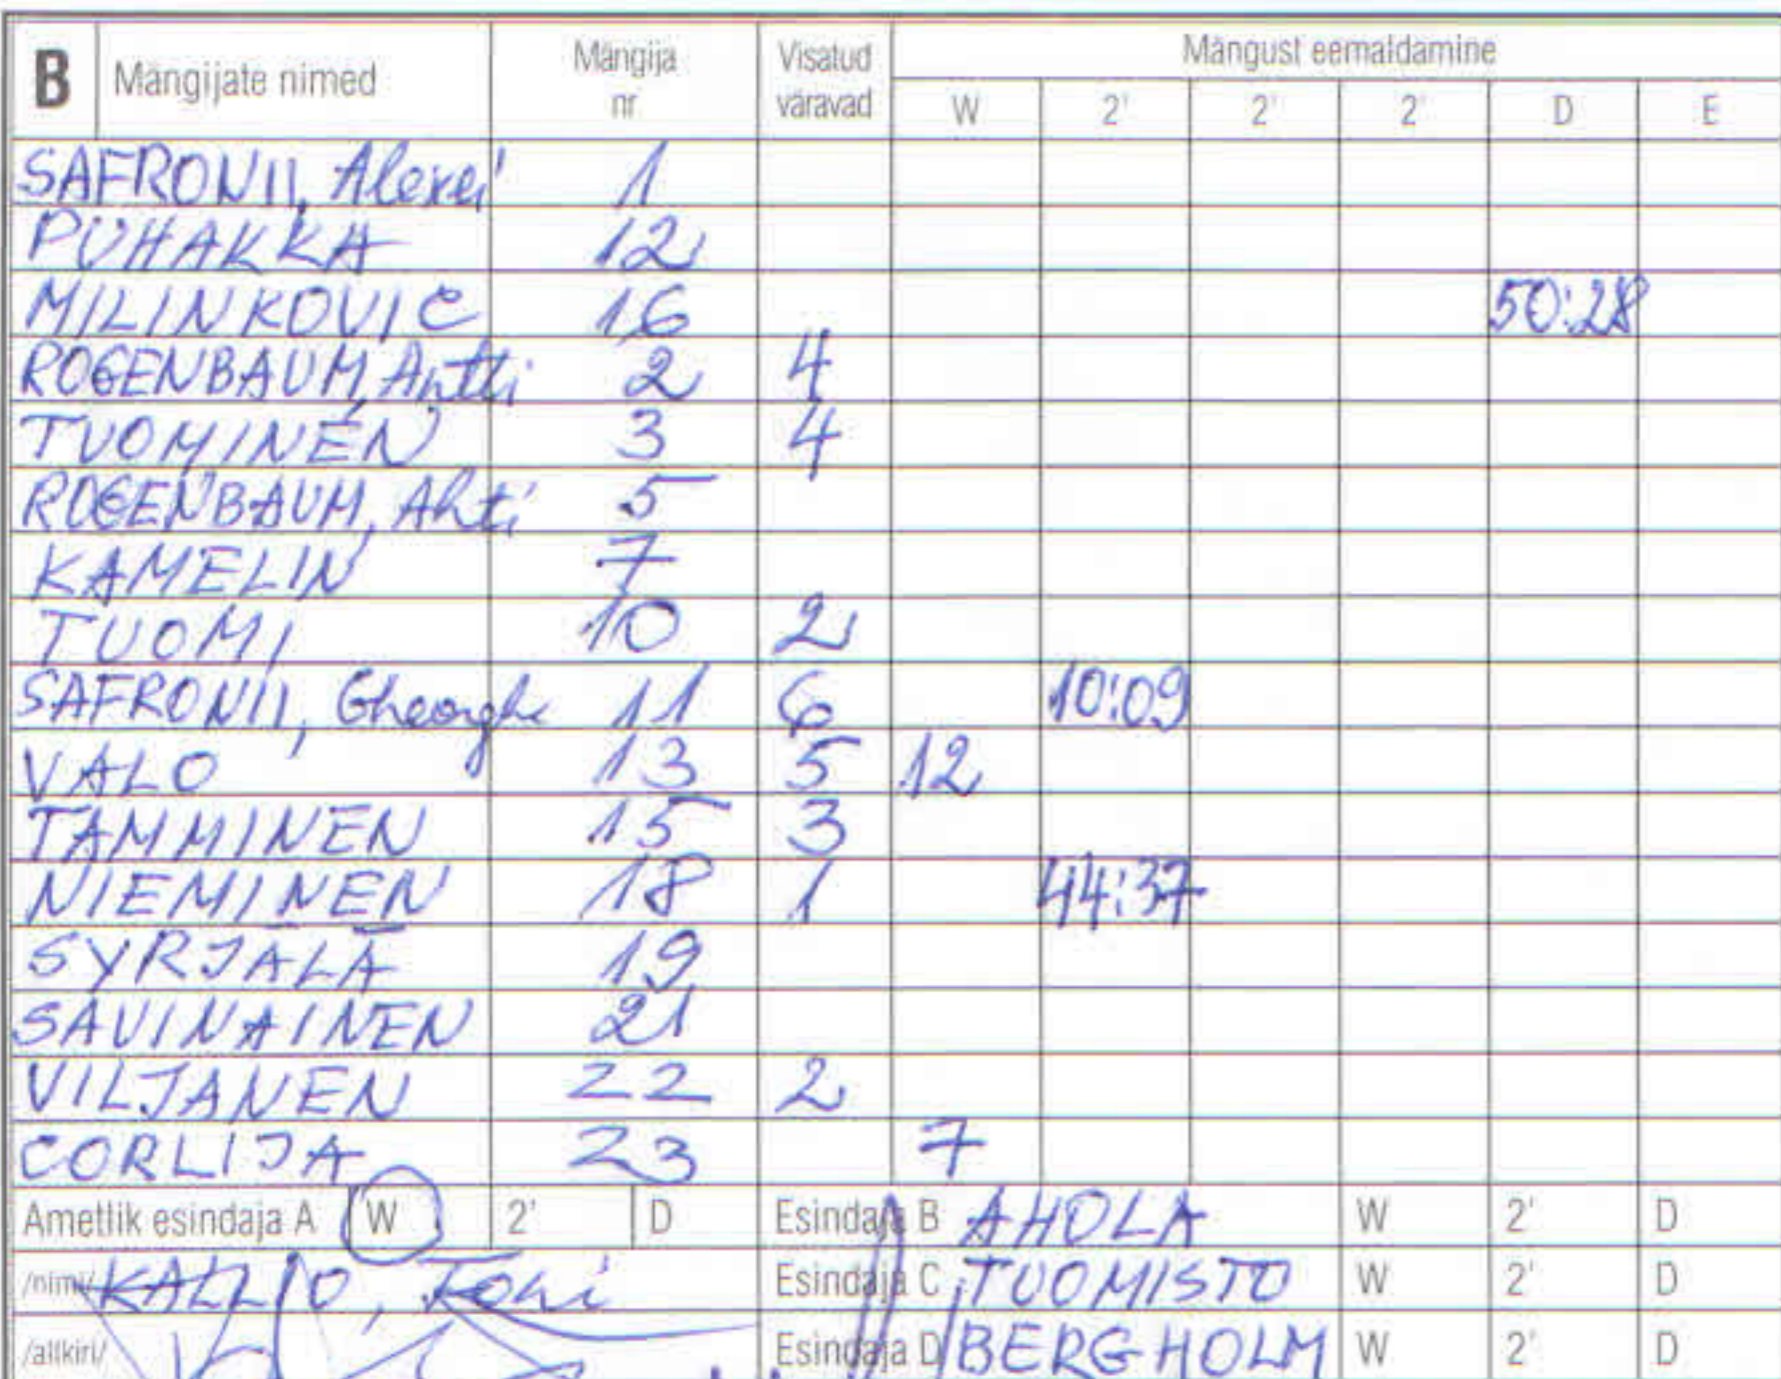 B Mängijate nimed Mängija nr Visatud väravad Mängust eemaldamine
W 2' 2' 2' D E
SAFRONII, Alexei 1
PUHAKKA 12
MILINKOVIC 16 50:28
ROGENBAUM, Antti 2 4
TUOMINEN 3 4
ROGENBAUM, Ahti 5
KAMELIN 7
TUOMI 10 2
SAFRONII, Gheorghe 11 6 10:09
VALO 13 5 12
TAMMINEN 15 3
NIEMINEN 18 1 44:37
SYRJÄLÄ 19
SAVINAINEN 21
VILJANEN 22 2
CORLIJA 23 7
Ametlik esindaja A W 2' D Esindaja B AHOLA W 2' D
/nimi/ KALLIO, Toni Esindaja C TUOMISTO W 2' D
/allkiri/ Esindaja D BERGHOLM W 2' D